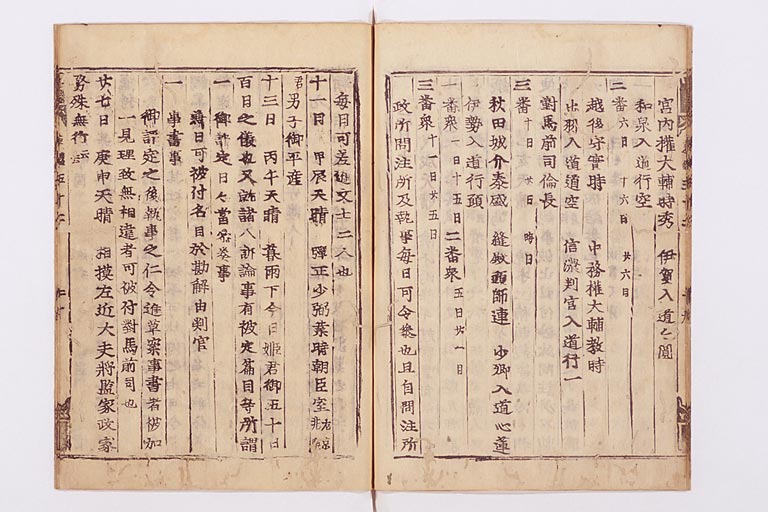 宮内権大輔時秀　伊賀入道々圓
和泉入道行空
二番　六日　十六日　廿六日
越後守實時　中務権大輔教時
出羽入道道空　信濃判官入道行一
對馬前司倫長
三番　十日　廿日　晦日
秋田城介泰盛　縫殿頭師連　少卿入道心蓮
伊勢入道行願
一番衆　一日十五日　二番衆　五日廿一日
三番衆　十一日廿五日
政所問注所及執事毎日可令参也且自問注所
毎日可差進文士二人也
十一日　甲辰天晴　弾正少弼業時朝臣室
君男子御平産
十三日　丙午天晴　暮雨下今日姫君御五十日
百日之儀也又就諸人訴論事有被定篇目等所謂
一　御評定日々當参事
日可被付名目於勘解由判官
一　事書事
御評定之後執事之仁令進草案事書者被加
一見理致無相違者可被付對馬前司也
廿七日　庚申天晴　相摸左近大夫将監家政家
務殊無行